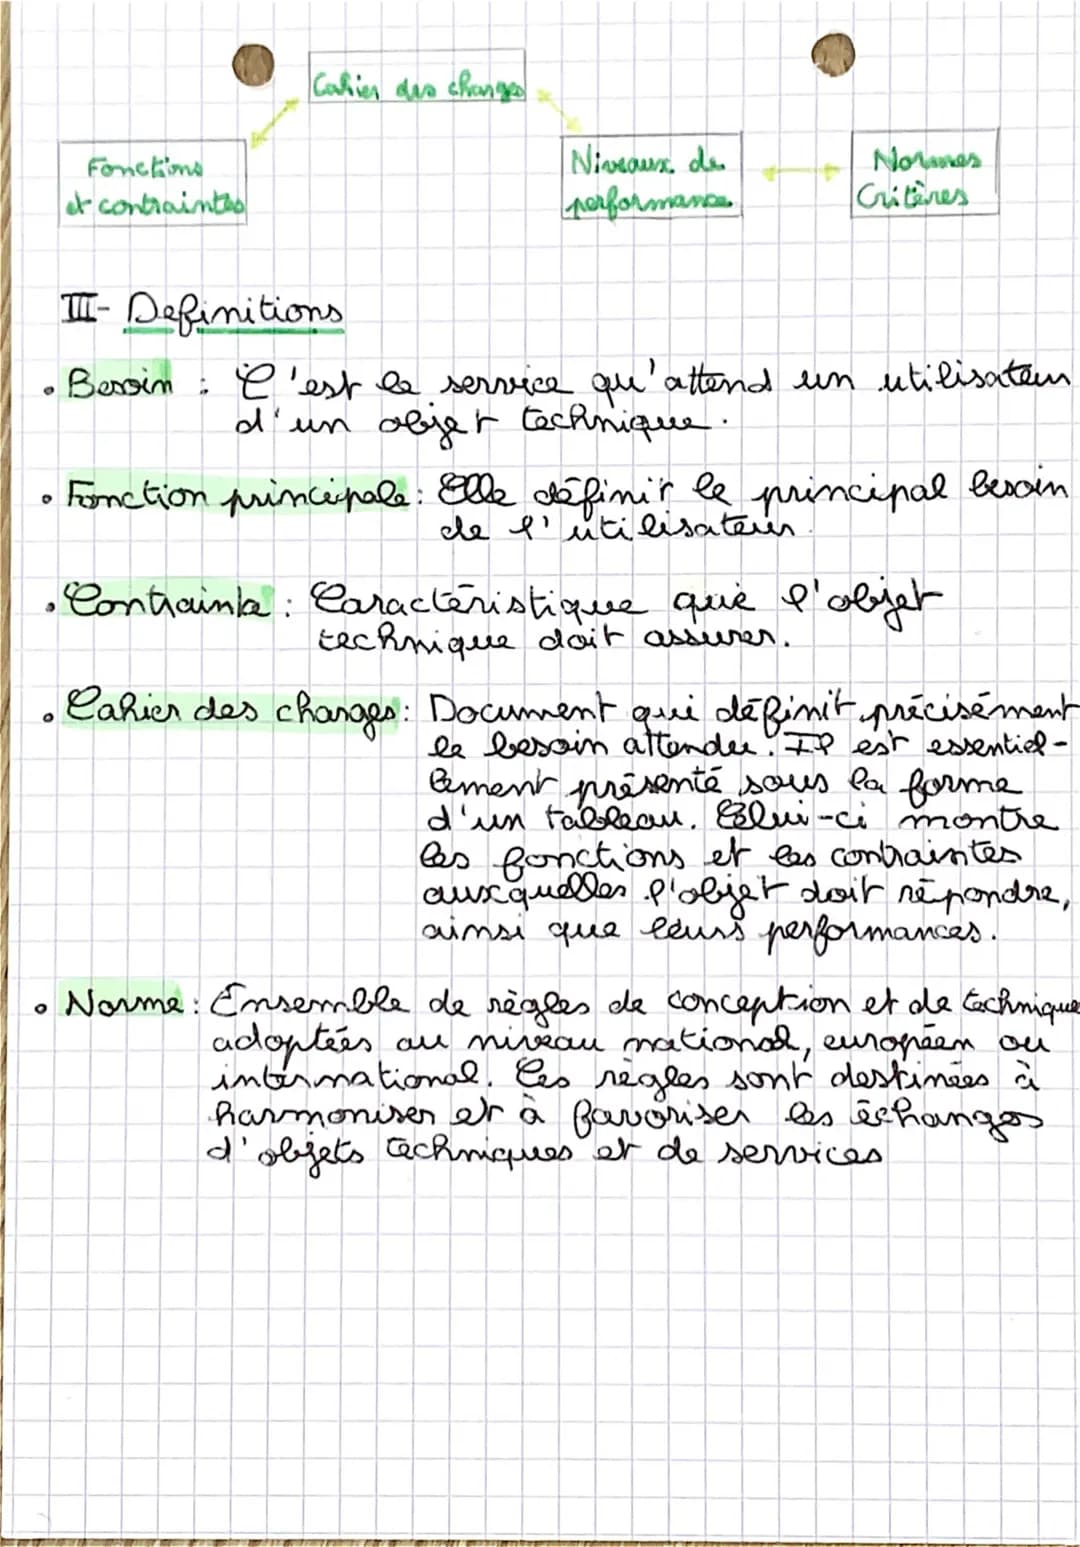 Cahier des charges
Fonctions
et contraintes
Niveaux de
performance
Normes
Critères
III- Definitions
• Besoin : C'est le service qu'attend un utilisateur
d'un objet technique.
• Fonction principale : Elle définit le principal besoin
de l'utilisateur.
• Contrainte : Caractéristique que l'objet
technique doit assurer.
• Cahier des charges : Document qui définit précisément
le besoin attendu. Il est essentiel-
lement présenté sous la forme
d'un tableau. Celui-ci montre
les fonctions et les contraintes
auxquelles l'objet doit répondre,
ainsi que leurs performances.
• Norme : Ensemble de règles de conception et de technique
adoptées au niveau national, européen ou
international. Ces règles sont destinées à
harmoniser et à favoriser les échanges
d'objets techniques et de services